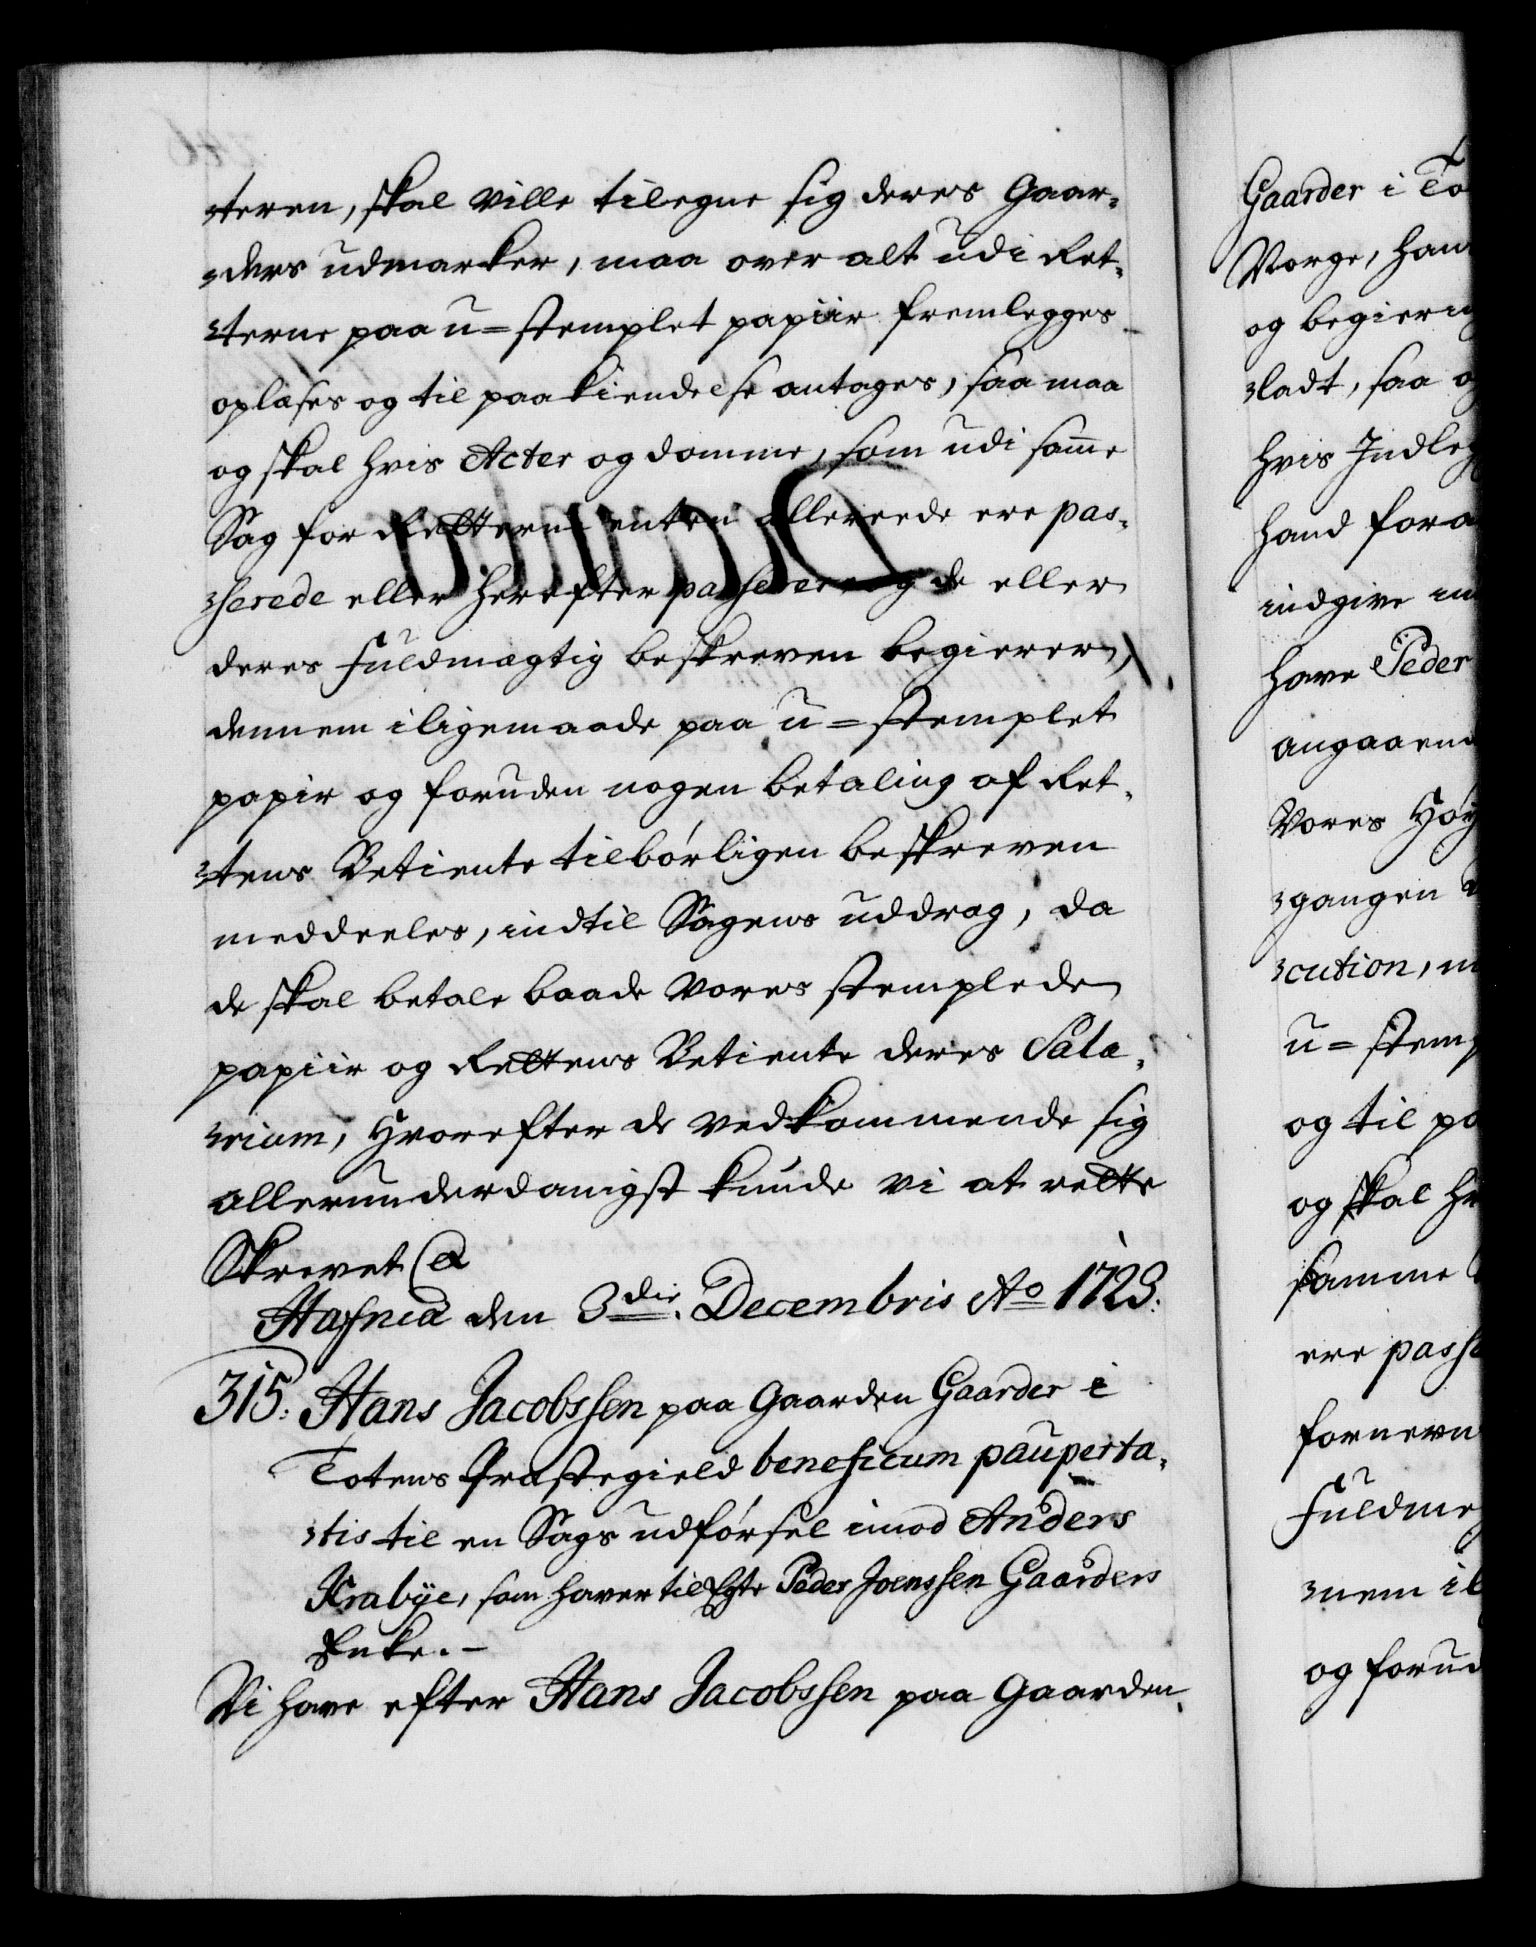 -teren, skal ville tilegne sig deres Gaar-
-ders udmarker, maa over alt udi Ret-
-terne paa u=stemplet papiir fremlegges
oplæses og til paakiendelse antages, saa maa
og skal hvis Acter og domme, som udi sam̅e
Sag for Retterne enten allereede ere pas-
-serede eller herefter passerer og de eller
deres Fuldmægtig beskreven begierer,
dennem iligemaade paa u=stemplet
papir og foruden nogen betaling af Ret-
-tens Betiente tilbørligen beskreven
meddeeles, indtil Sagens uddrag, da
de skal betale baade Vores stemplede
papiir og Rettens Betiente deres Sala-
-rium, Hvorefter de vedkommende sig
allerunderdanigst kunde vi at rette
Skrevet &
Hafniæ den 3die. Decembris Ao 1723.
315. Hans Jacobssen paa Gaarden Gaarder i
Totens Præstegield beneficum pauperta-
-tis til en Sags udførsel imod Anders
Krabye, som haver til Egte Peder Joenssen Gaarders
Enke.-
Vi have efter Hans Jacobssen paa Gaarden
Gaarder i To
Norge, han
og begiering
-ladt, saa og
hvis Indleg
hand fora
indgive in
have Peder
angaaend
Vores Høy
-gangen
-cution, m
u=stemp
og til pa
og skal hv
samme
ere passe
fornevn
Fuldme
-nem il
og forud